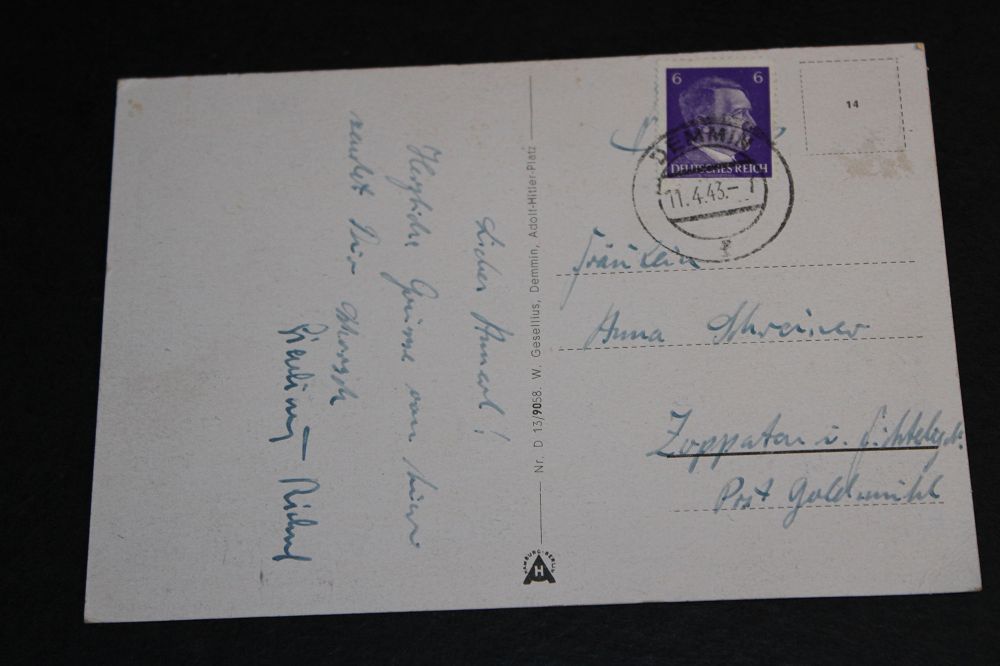 6 6
DEUTSCHES REICH
DEMMIN
11.4.43.-
14
Fräulein
Anna Schreiner
Zoppaten i. Fichtelgb.
Post Goldmühl
Nr. D 13/9058. W. Gesellius, Demmin, Adolf-Hitler-Platz
HAMBURG-BERLIN
H
Herzliche Grüsse von hier
sendet Dir
Richard